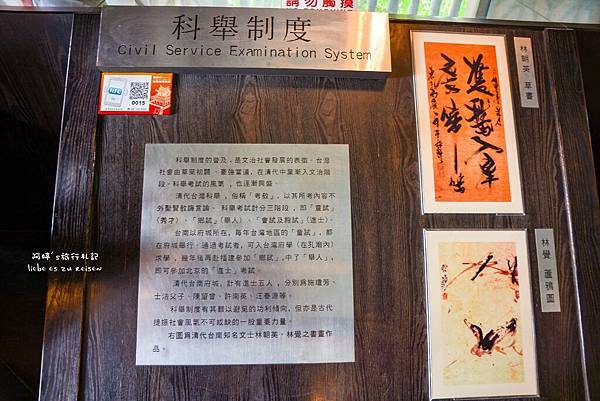 請勿觸摸
科舉制度
Civil Service Examination System
NFC
0015
科舉制度的普及，是文治社會發展的表徵。台灣
社會由草萊初闢、豪強當道，在清代中葉漸入文治階
段。科舉考試的風氣，也逐漸興盛。
清代台灣科舉，俗稱「考教」，以其所考內容不
外聖賢教誨言論。科舉考試計分三階段，即「童試」
（秀才）、「鄉試」（舉人）、「會試及殿試」（進士）。
台南以府城所在，每年台灣地區的「童試」，都
在府城舉行。通過考試者，可入台灣府學（在孔廟內）
求學，幾年後再赴福建參加「鄉試」，中了「舉人」，
即可參加北京的「進士」考試。
清代台南府城，計有進士五人，分別為施瓊芳、
士洁父子、陳望曾、許南英、汪春源等。
科舉制度有其難以避免的功利傾向，但亦是古代
提振社會風氣不可或缺的一股重要力量。
右圖為清代台南知名文士林朝英、林覺之書畫作
品。
林朝英 草書
林覺 蘆鴉圖
阿婷's旅行札記
liebe es zu reisen